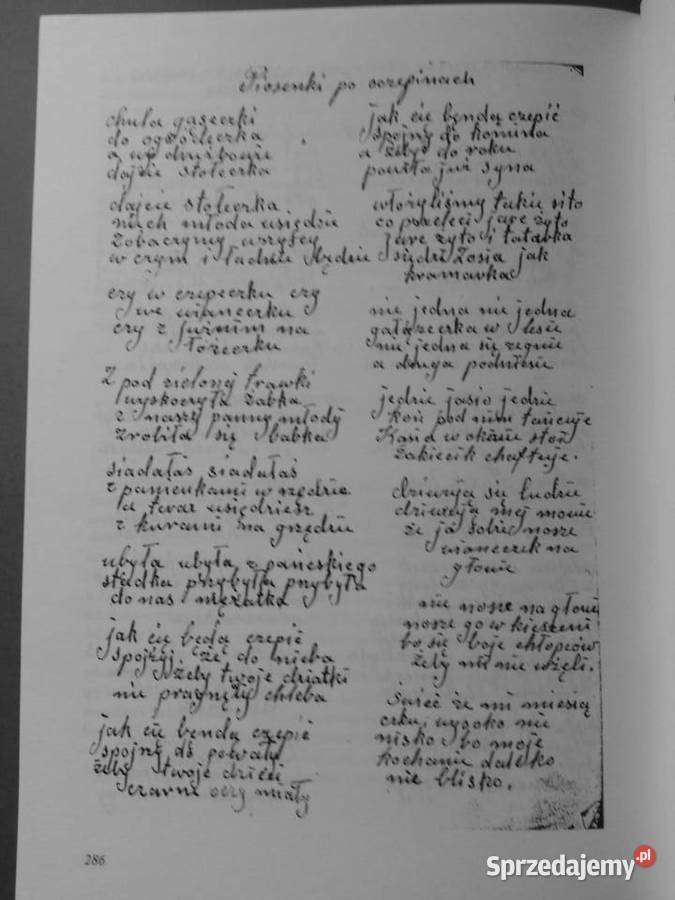 Piosenki po oczepinach
chula gąseczki
do ogródeczka
a wy
dajcie stołeczka
dajcie stołeczka
niech młoda usiędzie
zobaczymy wszyscy
w czym i ładnie będzie
czy w czepeczku czy
we wianeczku
czy z jaśnim na
łóżeczku
Z pod zielonej trawki
wyskoczyła żabka
z naszy panny młody
zrobiła się babka
siadałaś siadałaś
z panienkami w rzędzie
a teraz usiędziesz
z kurami na grzędzie
ubyła ubyła z pańeskiego
stadka przybyła przybyła
do nas mężatka
jak cię będą czepić
spojrzyj że do nieba
żeby twoje dziatki
nie pragnęły chleba
jak cię bendą czepić
spojrzy do powały
żeby twoje dzieci
czarne oczy miały
jak cię bendą czepić
spojrzy do komina
a żeby do roku
powiła już syna
włożyliśmy takie sito
co przeleci jare żyto
jare żyto i tatarka
siędzi Zosia jak
kramarka
nie jedna nie jedna
gałązeczka w lesie
nie jedna się zegnie
a druga podniesie
jedzie jasio jedzie
koń pod nim tańcuje
w oknie stoi
żakiecik chaftuje.
dziwują się ludzie
dziwują mej mowie
że ja sobie nosze
wianeczek na
głowie
nie nosze na głowi
nosze go w kieszeni
bo się boje chłopców
żeby mi nie wzęli.
Świeć że mi miesią
czku, wysoko nie
nisko bo moje
kochanie daleko
nie blisko.
286
Sprzedajemy.pl